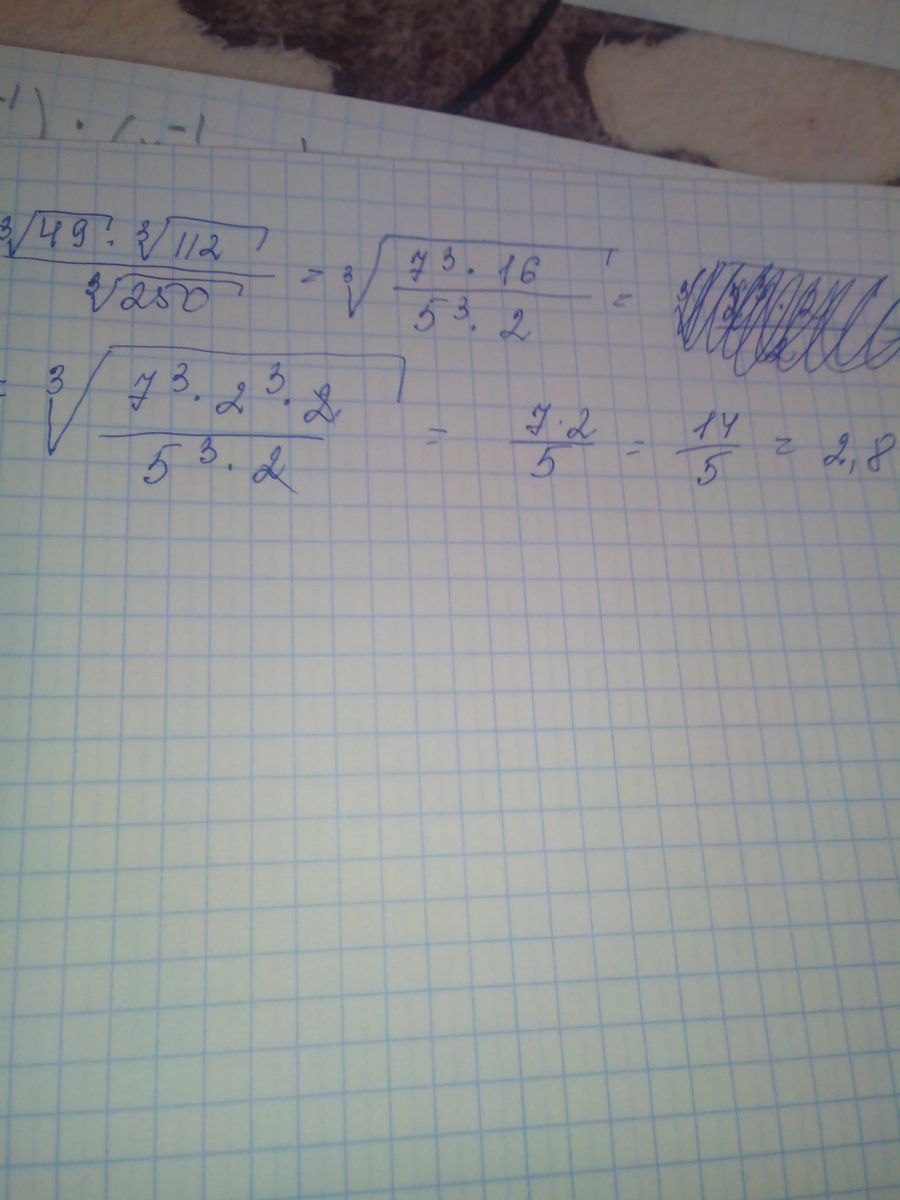 -1) · ( -1
∛49 · ∛112 / ∛250 = ∛(7³ · 16 / 5³ · 2) =
= ∛(7³ · 2³ · 2 / 5³ · 2) = 7·2 / 5 = 14 / 5 = 2,8